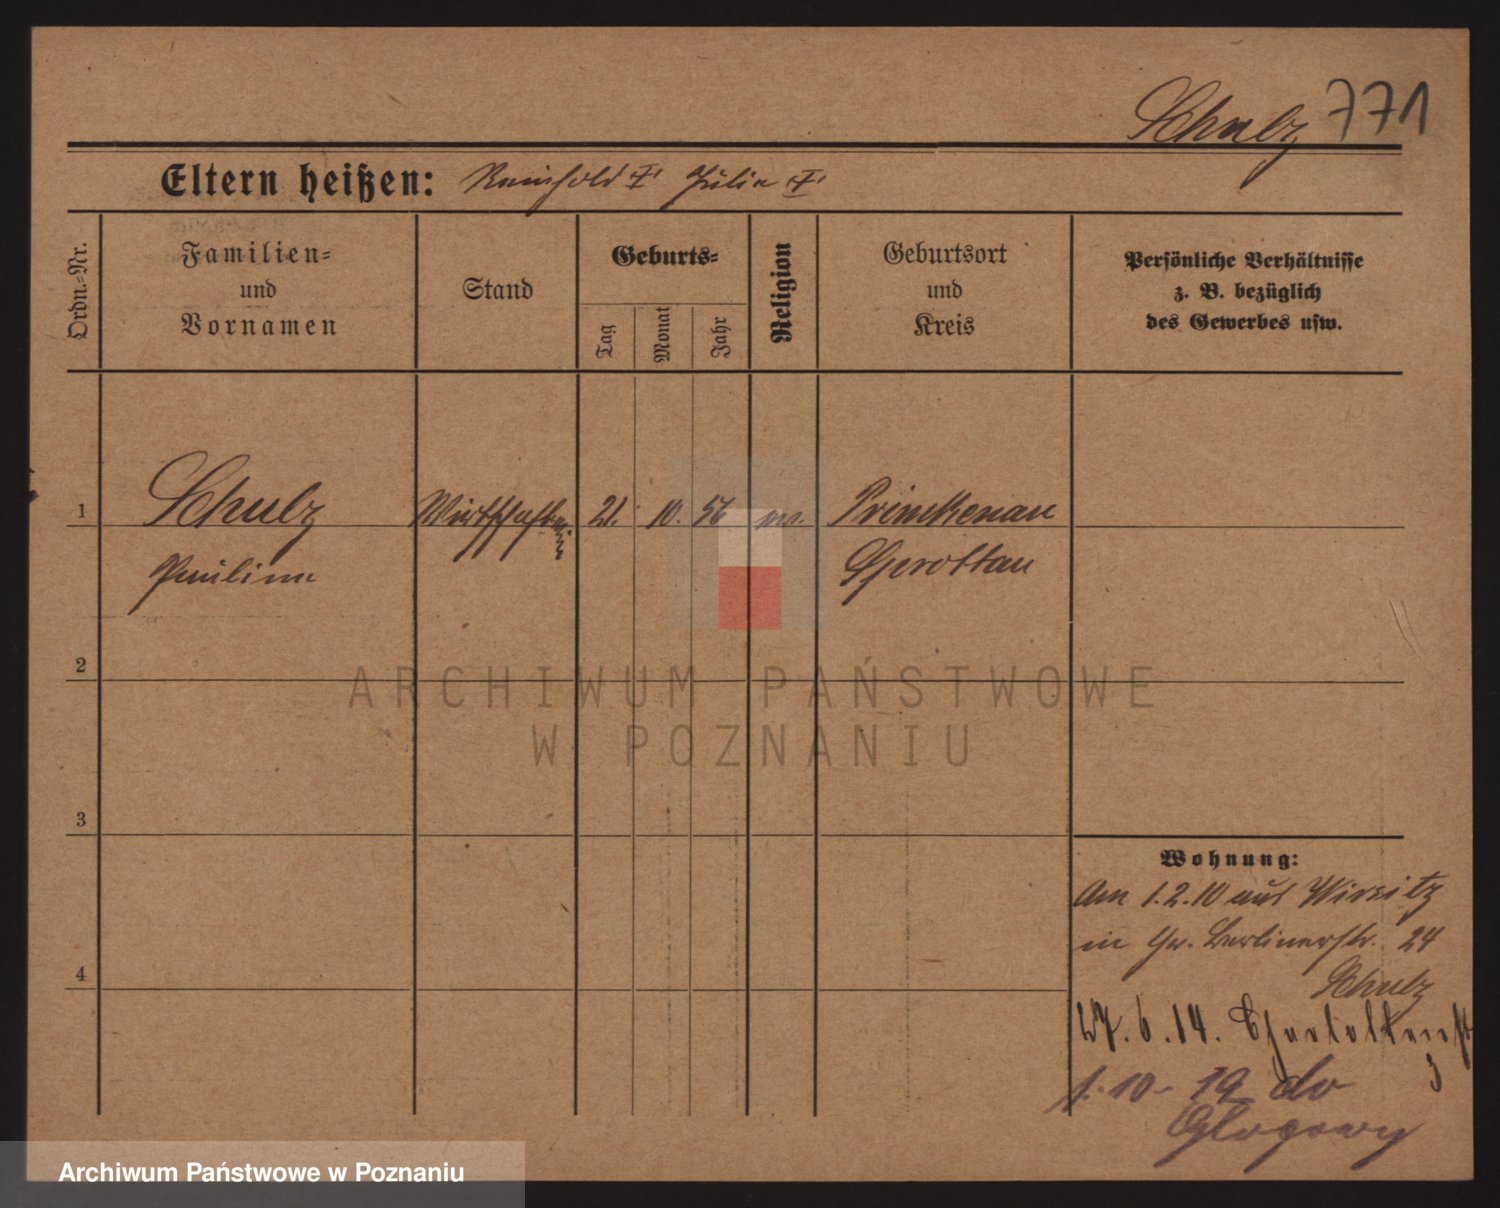 Schulz 771
Eltern heißen: Reinhold † Julia †
Ordn.=Nr.
Familien=
und
Vornamen
Stand
Geburts=
Tag
Monat
Jahr
Religion
Geburtsort
und
Kreis
Persönliche Verhältnisse
z. B. bezüglich
des Gewerbes usw.
1 Schulz 21. 10. 56 Primkenau
Pauline Sprottau
2
3
4
Wohnung:
Am 1.2.10 aus Wirsitz
in Gr. Berlinerstr. 24
Schulz
27. 6. 14.
3
1. 10 - 19 do
Glogowy
ARCHIWUM PAŃSTWOWE
W POZNANIU
Archiwum Państwowe w Poznaniu